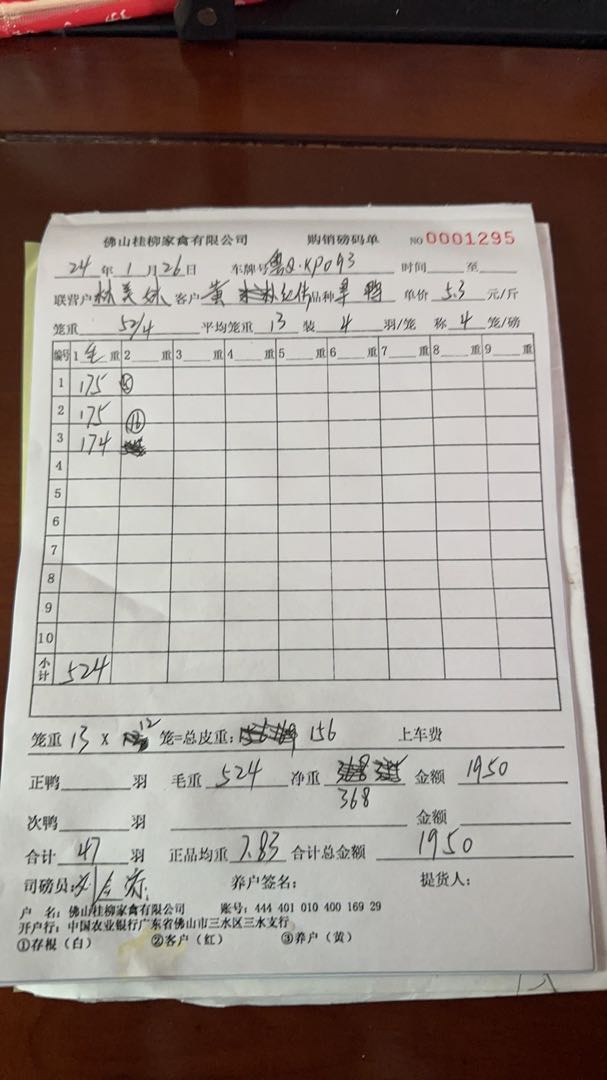 佛山桂柳家禽有限公司 购销磅码单 NO 0001295
24 年 1 月 26 日 车牌号 粤Q·KP093 时间 至
联营户 林美 客户 黄 品种 旱鸭 单价 5.3 元/斤
笼重 52/4 平均笼重 13 装 4 羽/笼 称 4 笼/磅
编号 1 毛 重 2 重 3 重 4 重 5 重 6 重 7 重 8 重 9 重
1 175
2 175 ⑯
3 174
4
5
6
7
8
9
10
小计 524
笼重 13 x 12 笼=总皮重: 156 上车费
正鸭 羽 毛重 524 净重 368 金额 1950
次鸭 羽 金额
合计 47 羽 正品均重 7.83 合计总金额 1950
司磅员: 养户签名: 提货人:
户 名: 佛山桂柳家禽有限公司 账号: 444 401 010 400 169 29
开户行: 中国农业银行广东省佛山市三水区三水支行
①存根（白） ②客户（红） ③养户（黄）